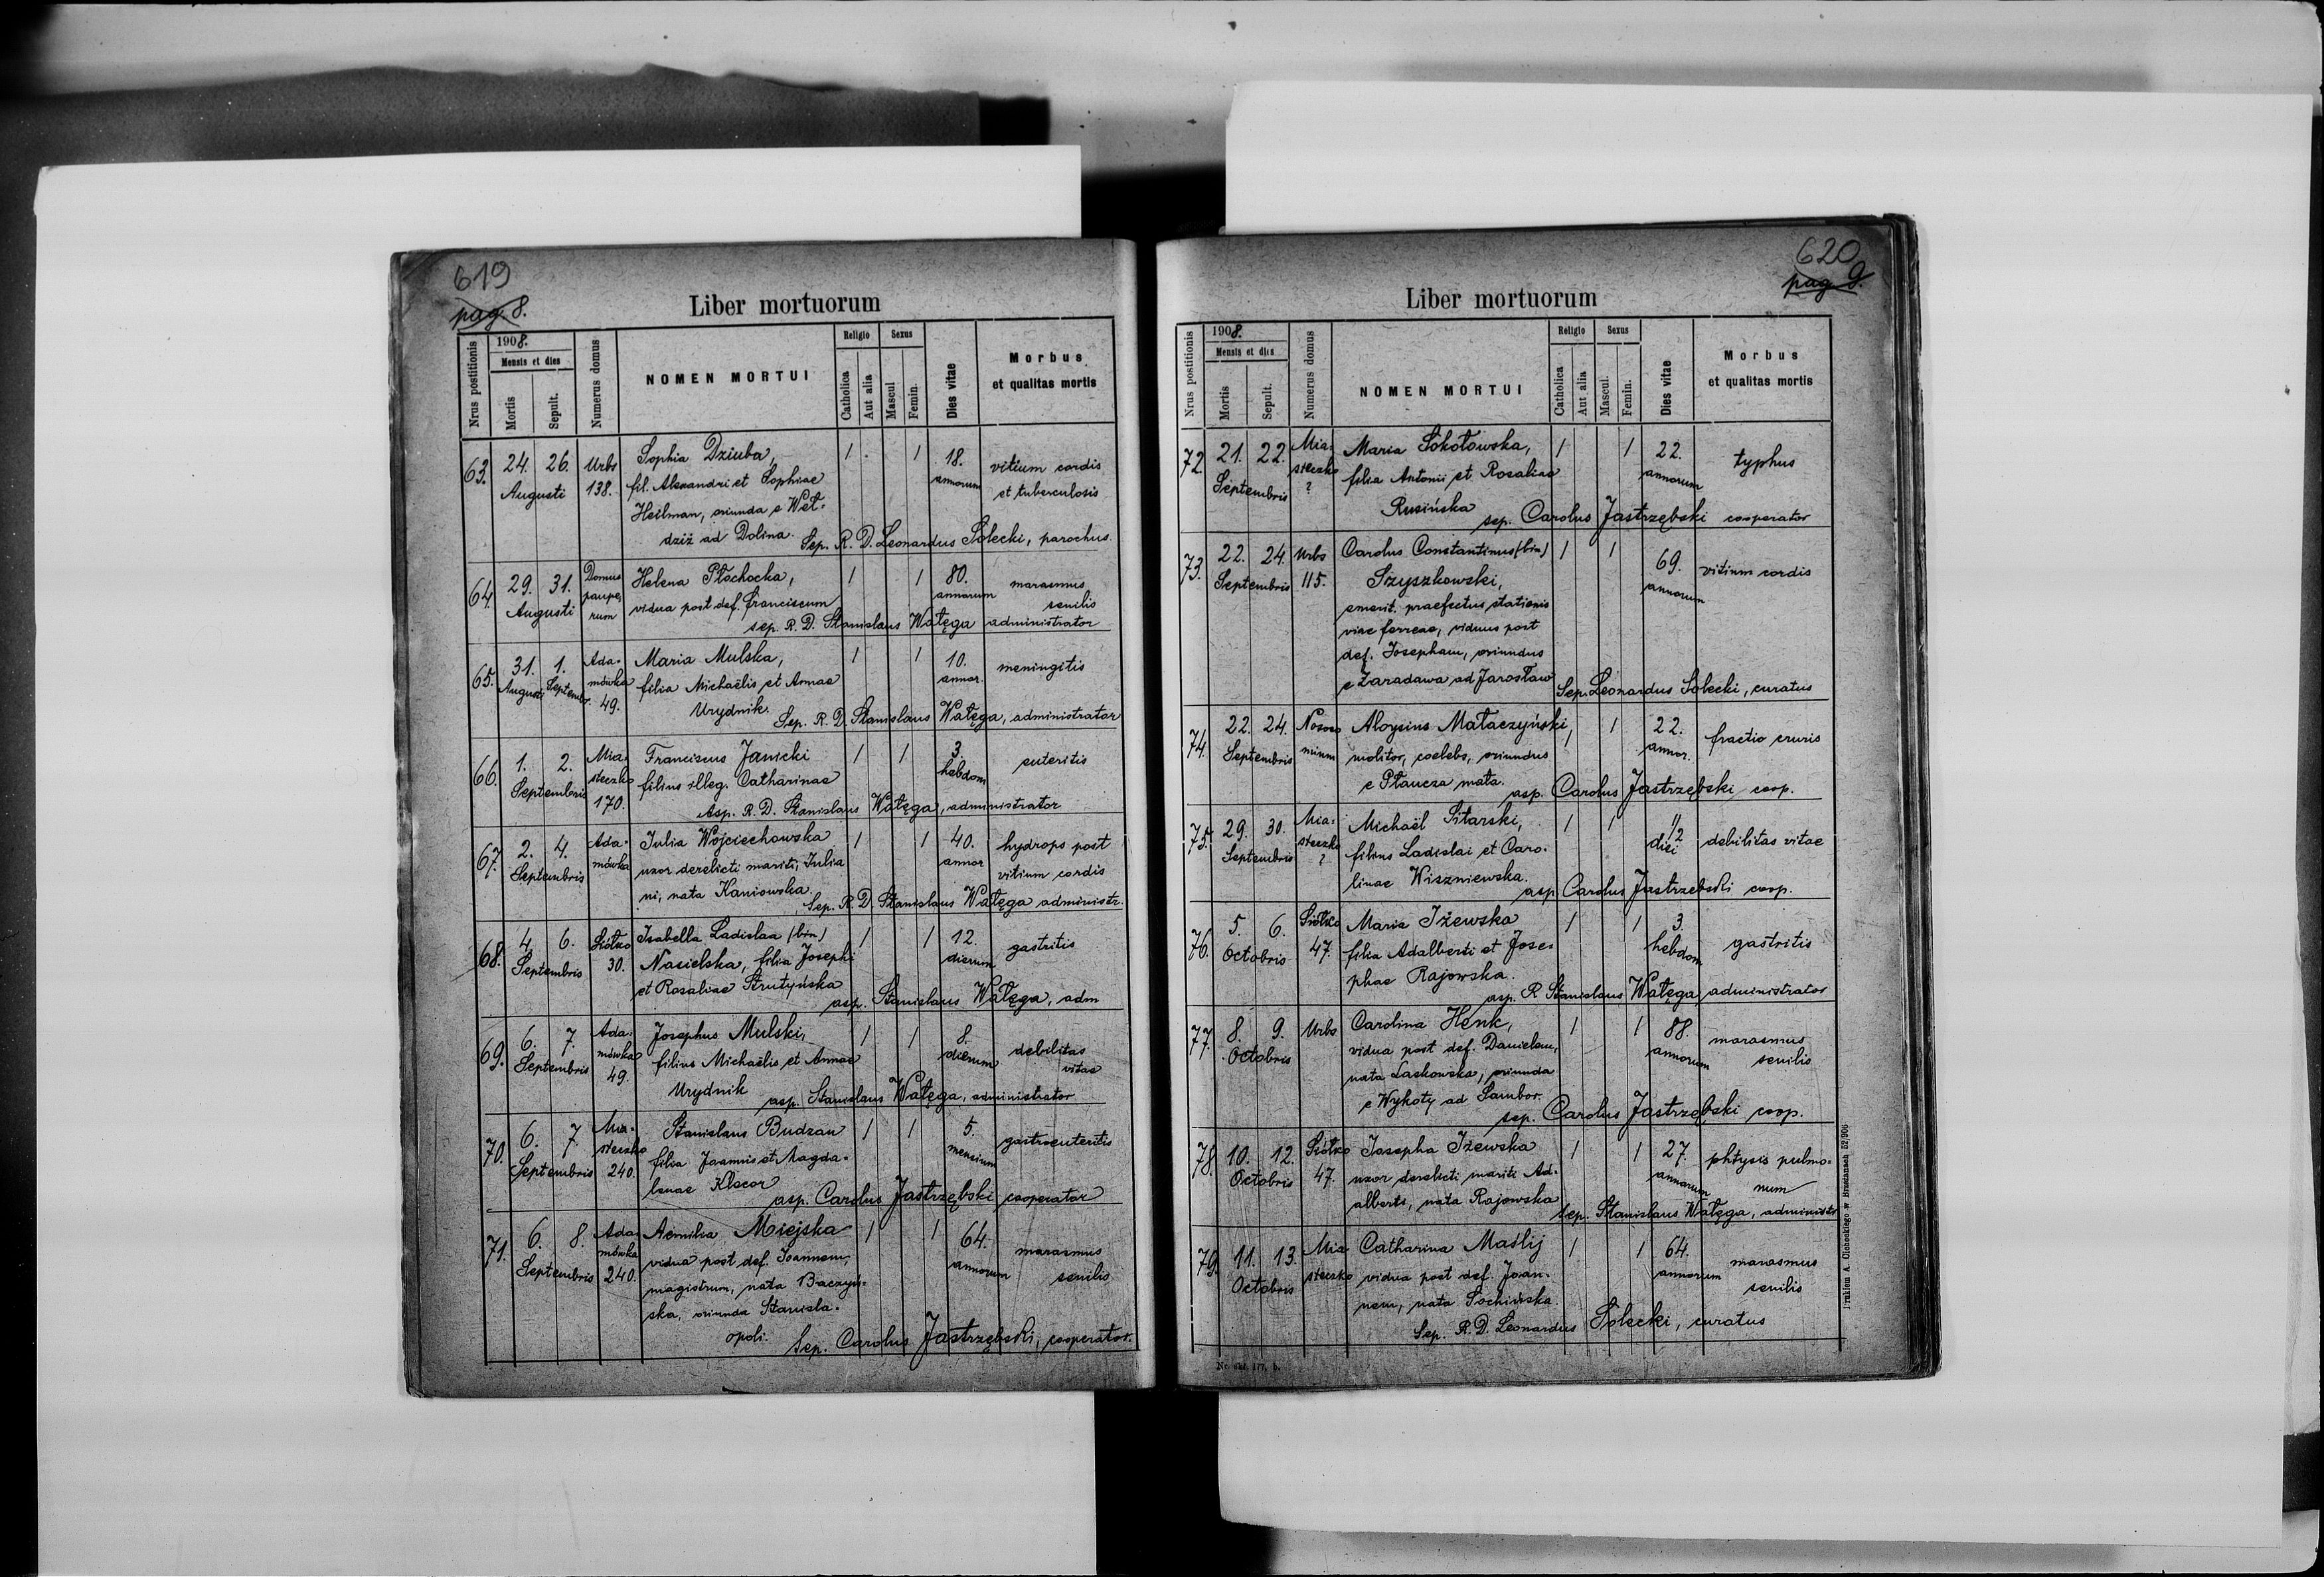 619
pag. 8.
Liber mortuorum
Nrus postitionis
1908.
Mensis et dies
Mortis
Sepult.
Numerus domus
NOMEN MORTUI
Religio
Catholica
Aut alia
Sexus
Mascul
Femin.
Dies vitae
Morbus
et qualitas mortis
63. 24. 26. Urbs Sophia Dziuba, 1 . 1 18. vitium cordis
Augusti 138. fil. Alexandri et Sophiae annorum et tuberculosis
Heilman, oriunda e Weł-
dziż ad Dolina. Sep. R. D. Leonardus Solecki, parochus.
64. 29. 31. Domus Helena Płochocka, 1 1 80. marasmus
Augusti paupe- rum vidua post def. Franciscum annorum senilis
sep. R. D. Stanislaus Wałęga administrator
65. 31. 1. Ada- Maria Mulska, 1 1 10. meningitis
Augusti Septembr. mówka filia Michaëlis et Annae annor.
49. Urydnik. Sep. R. D. Stanislaus Wałęga, administrator
66. 1. 2. Mia- Franciscus Janicki 1 1 3. enteritis
Septembris steczko filius illeg. Catharinae hebdom
170. Asp. R. D. Stanislaus Wałęga, administrator
67. 2. 4. Ada- Julia Wojciechowska 1 1 40. hydrops post
Septembris mówka uxor derelicti mariti, Julia annor vitium cordis
ni, nata Kaniowska. Sep. R. D. Stanislaus Wałęga administr.
68. 4. 6. Siółko Isabella Ladislaa (bin) 1 1 12. gastritis
Septembris 30. Nasielska, filia Josephi dierum
et Rosaliae Strutyńska
asp. Stanislaus Wałęga, adm
69. 6. 7. Ada- Josephus Mulski, 1 1 8. debilitas
Septembris mówka filius Michaëlis et Annae dierum vitae
49. Urydnik asp. Stanislaus Wałęga, administrator
70. 6. 7. Mia- Stanislaus Budzan 1 1 5. gastroenteritis
Septembris steczko filia Joannis et Magda- mensium
240. lenae Klecor
asp. Carolus Jastrzębski cooperator
71. 6. 8. Ada- Aemilia Miejska 1 1 64. marasmus
Septembris mówka vidua post def. Joannem, annorum senilis
240. magistrum, nata Baczyń-
ska, oriunda Stanisla-
opoli. Sep. Carolus Jastrzębski, cooperator.
620
pag. 9.
Liber mortuorum
Nrus postitionis
1908.
Mensis et dies
Mortis
Sepult.
Numerus domus
NOMEN MORTUI
Religio
Catholica
Aut alia
Sexus
Mascul.
Femin.
Dies vitae
Morbus
et qualitas mortis
72. 21. 22. Mia- Maria Sokołowska, 1 1 22. typhus
Septembris steczko filia Antonii et Rosaliae annorum
? Rusińska
sep. Carolus Jastrzębski cooperator
73. 22. 24. Urbs Carolus Constantinus (bin) 1 1 69. vitium cordis
Septembris 115. Szyszkowski, annorum
emerit. praefectus stationis
viae ferreae, viduus post
def. Josepham, oriundus
e Zaradawa ad Jarosław Sep. Leonardus Solecki, curatus
74. 22. 24. Nosoco Aloysius Mataczyński, 1 1 22. fractio cruris
Septembris mium molitor, coelebs, oriundus annor.
e Płaucza mała. asp. Carolus Jastrzębski coop.
75. 29. 30. Mia- Michaël Sitarski, 1 1 1/2 debilitas vitae
Septembris steczko filius Ladislai et Caro- diei
? linae Wiszniewska.
asp. Carolus Jastrzębski coop.
76. 5. 6. Siółko Maria Iżewska 1 1 3. gastritis
Octobris 47. filia Adalberti et Jose- hebdom
phae Rajowska.
asp. R Stanislaus Wałęga administrator
77. 8. 9. Urbs Carolina Henk, 1 1 88. marasmus
Octobris vidua post def. Danielem, annorum senilis
nata Laskowska, oriunda
e Wykoty ad Sambor.
sep. Carolus Jastrzębski coop.
78. 10. 12. Siółko Josepha Iżewska 1 1 27. phtysis pulmo-
Octobris 47. uxor derelicti mariti Ad- annorum num
alberti, nata Rajowska
Sep. Stanislaus Wałęga, administr
79. 11. 13. Mia Catharina Maślij 1 1 64. marasmus
Octobris steczko vidua post def. Joan- annorum senilis
nem, nata Sochińska.
Sep. R. D. Leonardus Solecki, curatus